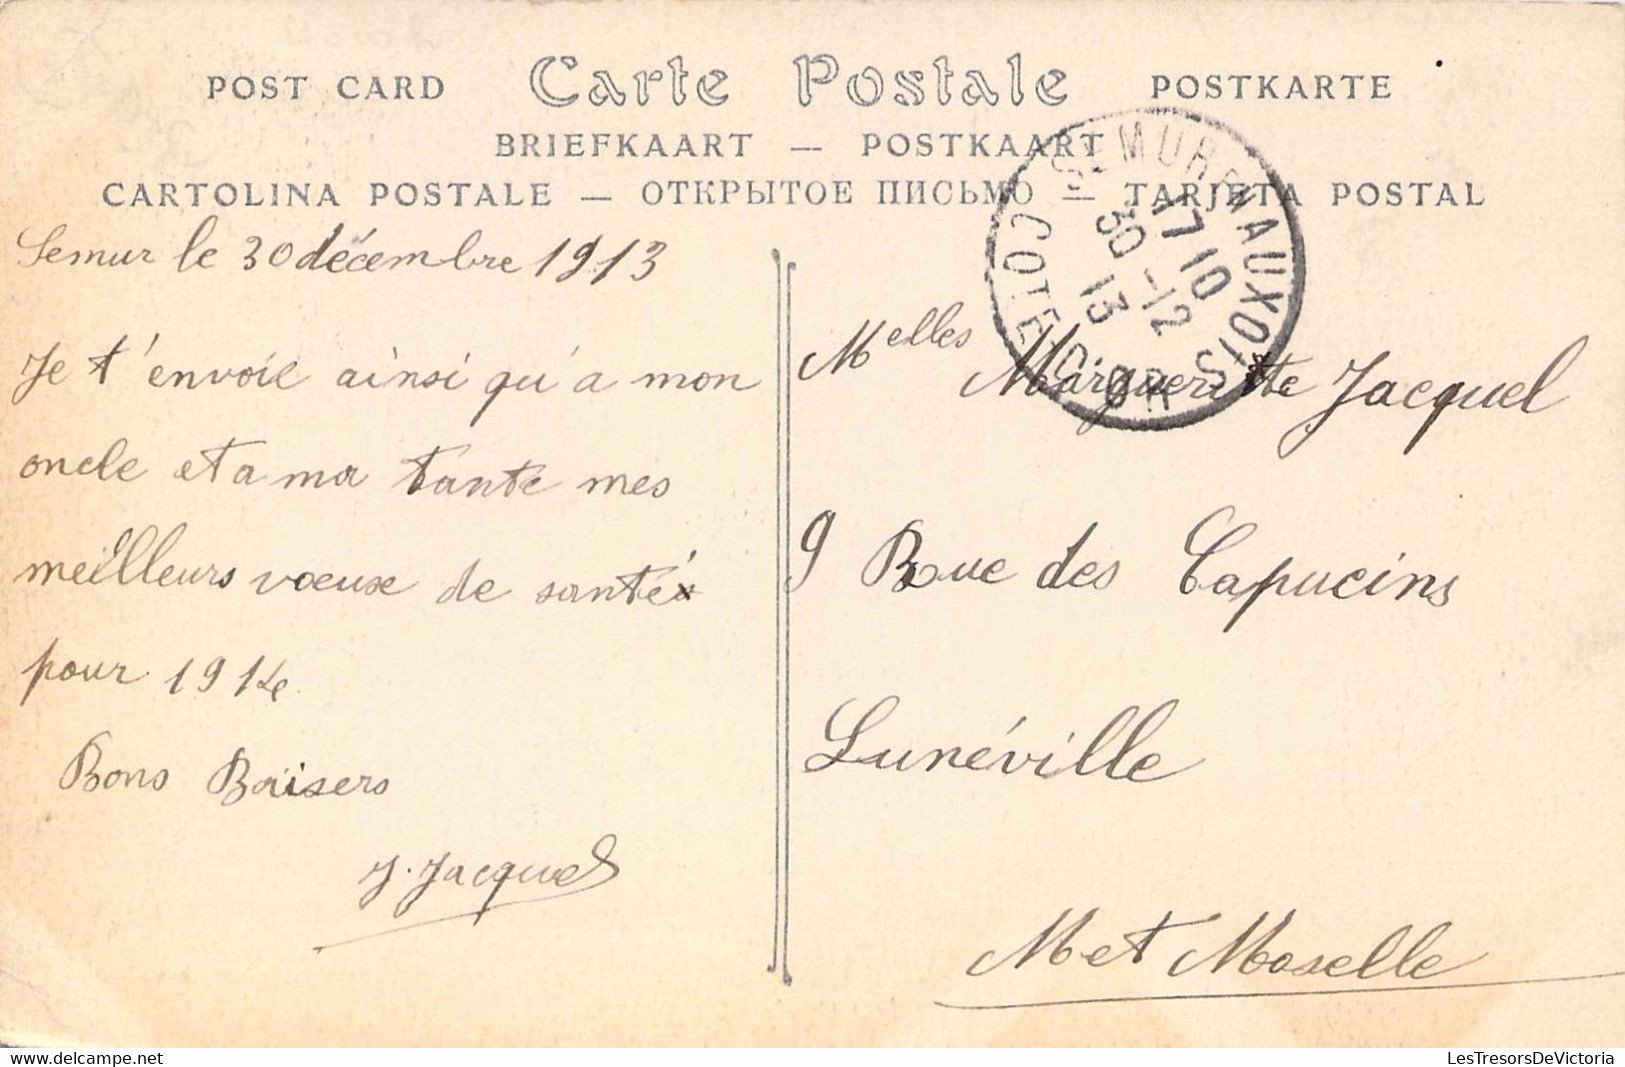 POST CARD Carte Postale POSTKARTE
BRIEFKAART — POSTKAART
CARTOLINA POSTALE — ОТКРЫТОЕ ПИСЬМО — TARJETA POSTAL
SEMUR-EN-AUXOIS
17 10
30 -12
13
COTE-D'OR
Semur le 30 décembre 1913
Je t'envoie ainsi qu'a mon
oncle et a ma tante mes
meilleurs voeux de santé
pour 1914
Bons Baisers
J. Jacquel
Melles Marguerite Jacquel
9 Rue des Capucins
Lunéville
M et Moselle
LesTresorsDeVictoria